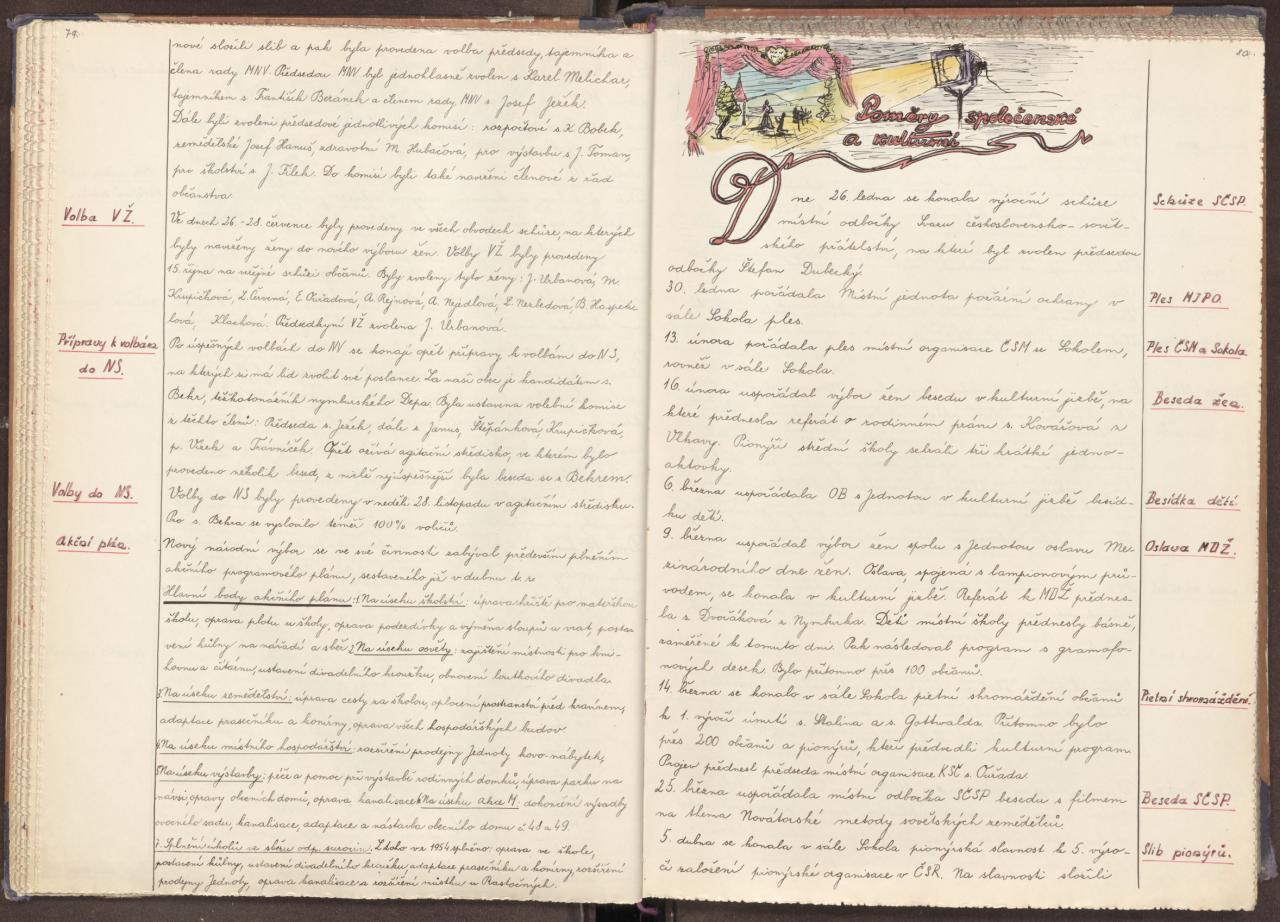 79.
nově složili slib a pak byla provedena volba předsedy, tajemníka a
člena rady MNV. Předsedou MNV byl jednohlasně zvolen s. Karel Melichar,
tajemníkem s. František Beránek a členem rady MNV s. Josef Ježek.
Dále byli zvoleni předsedové jednotlivých komisí: rozpočtové s. K. Bobek,
zemědělské Josef Hanuš, zdravotní M. Hubačová, pro výstavbu s. J. Toman,
pro školství s. J. Filek. Do komisí byli také navrženi členové z řad
občanstva.
Volba VŽ.
Ve dnech 26.-28. července byly provedeny ve všech obvodech schůze, na kterých
byly navrženy ženy do nového výboru žen. Volby VŽ byly provedeny
15. října na veřejné schůzi občanů. Byly zvoleny tyto ženy: J. Urbanová, M.
Krupičková, L. Červená, E. Ouřadová, A. Rejnová, A. Nejedlová, L. Nezbedová, B. Haspek-
lová, Klachová. Předsedkyní VŽ zvolena J. Urbanová.
Přípravy k volbám
do NS.
Po úspěšných volbách do NV se konají opět přípravy k volbám do NS,
na kterých si má lid zvolit své poslance. Za naši obec je kandidátem s.
Behr, těžkotonážník nymburského Depa. Byla ustavena volební komise
z těchto členů: Předseda s. Ježek, dále s. Janus, Štěpánková, Krupičková,
p. Vlzek a Trávníček. Opět ožívá agitační středisko, ve kterém bylo
provedeno několik besed, z nichž nejúspěšnější byla beseda se s. Behrem.
Volby do NS.
Volby do NS byly provedeny v neděli 28. listopadu v agitačním středisku.
Pro s. Behra se vyslovilo téměř 100% voličů.
Akční plán.
Nový národní výbor se ve své činnosti zabýval především plněním
akčního programového plánu, sestaveného již v dubnu t. r.
Hlavní body akčního plánu: 1. Na úseku školství: úprava hřiště pro mateřskou
školu, oprava plotu u školy, oprava podezdívky a výměna sloupů u vrat, posta-
vení kůlny na nářadí a sběr. 2. Na úseku osvěty: zajištění místnosti pro kni-
hovnu a čítárnu, ustavení divadelního kroužku, obnovení loutkového divadla.
3. Na úseku zemědělství: úprava cesty za školou, oplocení prostranství před kravínem,
adaptace prasečníku a konírny, oprava všech hospodářských budov.
4. Na úseku místního hospodářství: rozšíření prodejny Jednoty kovo-nábytek,
5. Na úseku výstavby: péče a pomoc při výstavbě rodinných domků, úprava parku na
návsi, opravy obecních domů, oprava kanalisace. 6. Na úseku akce M: dokončení výsadby
ovocného sadu, kanalisace, adaptace a nástavba obecního domu č. 48 a 49.
7. Splnění úkolů ve sběru odp. surovin. Z toho v r. 1954 splněno: oprava ve škole,
postavení kůlny, ustavení divadelního kroužku, adaptace prasečníku a konírny, rozšíření
prodejny Jednoty, oprava kanalisace a rozšíření můstku u Rastočných.
80.
Poměry společenské
a kulturní
Dne 26. ledna se konala výroční schůze
místní odbočky Svazu československo-sovět-
ského přátelství, na které byl zvolen předsedou
odbočky Štefan Dubecký.
Schůze SČSP.
30. ledna pořádala Místní jednota požární ochrany v
sále Sokola ples.
Ples MJPO.
13. února pořádala ples místní organisace ČSM se Sokolem,
rovněž v sále Sokola.
Ples ČSM a Sokola
16. února uspořádal výbor žen besedu v kulturní jizbě, na
které přednesla referát o rodinném právu s. Kovářová z
Vlkavy. Pionýři střední školy sehráli tři krátké jedno-
aktovky.
Beseda žen.
6. března uspořádala OB s Jednotou v kulturní jizbě besíd-
ku dětí.
Besídka dětí.
9. března uspořádal výbor žen spolu s Jednotou oslavu Me-
zinárodního dne žen. Oslava, spojená s lampionovým prů-
vodem, se konala v kulturní jizbě. Referát k MDŽ přednes-
la s. Dvořáková z Nymburka. Děti místní školy přednesly básně,
zaměřené k tomuto dni. Pak následoval program s gramofo-
nových desek. Bylo přítomno přes 100 občanů.
Oslava MDŽ.
14. března se konalo v sále Sokola pietní shromáždění občanů
k 1. výročí úmrtí s. Stalina a s. Gottwalda. Přítomno bylo
přes 200 občanů a pionýrů, kteří předvedli kulturní program.
Projev přednesl předseda místní organisace KSČ s. Ouřada.
Pietní shromáždění.
25. března uspořádala místní odbočka SČSP besedu s filmem
na thema Novátorské metody sovětských zemědělců.
Beseda SČSP.
5. dubna se konala v sále Sokola pionýrská slavnost k 5. výro-
čí založení pionýrské organisace v ČSR. Na slavnosti složili
Slib pionýrů.